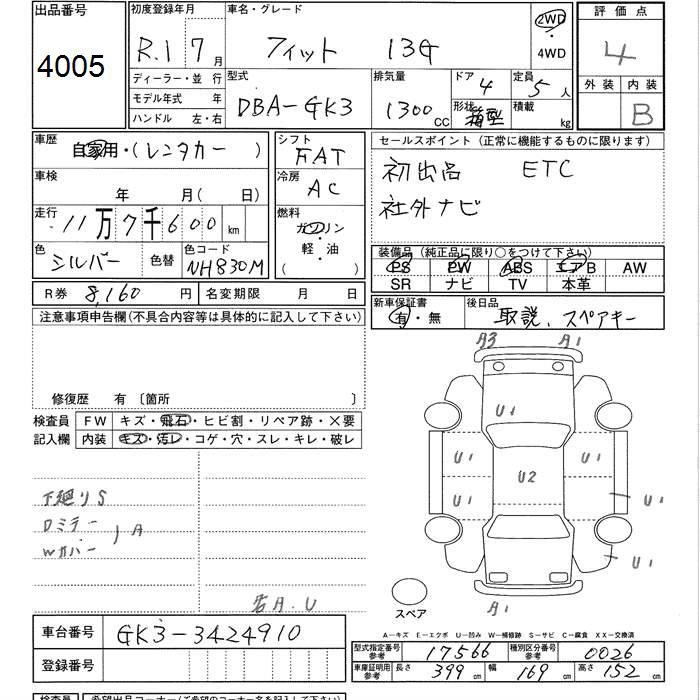 出品番号
4005
初度登録年月
R.1 7 月
ディーラー・並行
モデル年式 年
ハンドル 左・右
車名・グレード
フィット 13G
2WD
・
4WD
型式
DBA-GK3
排気量
1300 CC
ドア
4
定員
5 人
形状
箱型
積載
kg
評価点
4
外装 内装
B
車歴
自家用・(レンタカー)
車検
年 月(日)
走行
11万7千600 km
色
シルバー
色替
色コード
NH830M
シフト
FAT
冷房
AC
燃料
ガソリン
・
軽・油
( )
セールスポイント(正常に機能するものに限ります)
初出品 ETC
社外ナビ
装備品(純正品に限り○をつけて下さい)
PS PW ABS エアB AW
SR ナビ TV 本革
R券 8,160 円
名変期限 月 日
新車保証書
有・無
後日品
取説、スペアキー
注意事項申告欄(不具合内容等は具体的に記入して下さい)
修復歴 有〔箇所 〕
検査員
記入欄
FW キズ・飛石・ヒビ割・リペア跡・×要
内装 キズ・汚レ・コゲ・穴・スレ・キレ・破レ
下廻りS
Dミラー
Wカバー
A
A.U
A3 A1
U1
U1 U1
U2
U1 U1
U1
A1
スペア
A-キズ E-エクボ U-凹み W-補修跡 S-サビ C-腐食 XX-交換済
車台番号
GK3-3424910
登録番号
型式指定番号
参考
17566
種別区分番号
参考
0026
車庫証明用
参考
長さ 399 cm
幅 169 cm
高さ 152 cm
検査員
希望出品コーナー(ご希望のコーナー名を記入下さい)